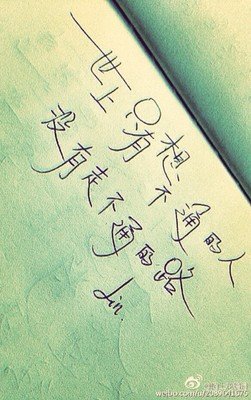 世上只有想不通的人
没有走不通的路
Lin.